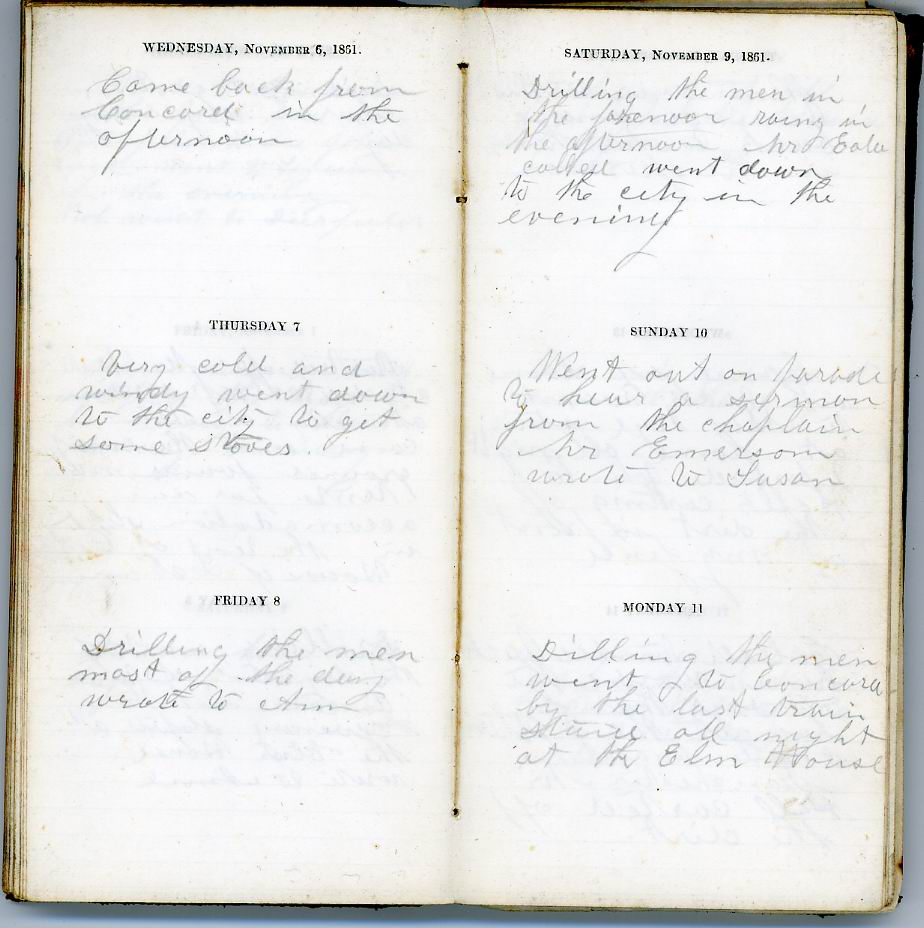 WEDNESDAY, NOVEMBER 6, 1861.
Came back from
Concord in the
afternoon
THURSDAY 7
Very cold and
windy went down
to the city to get
some stoves
FRIDAY 8
Drilling the men
most of the day
wrote to Ann
SATURDAY, NOVEMBER 9, 1861.
Drilling the men in
the forenoon rainy in
the afternoon Mr
called went down
to the city in the
evening
SUNDAY 10
Went out on parade
to hear a sermon
from the chaplain
Mr Emerson
wrote to Susan
MONDAY 11
Dilling the men
went to Concord
by the last train
all night
at the Elm House